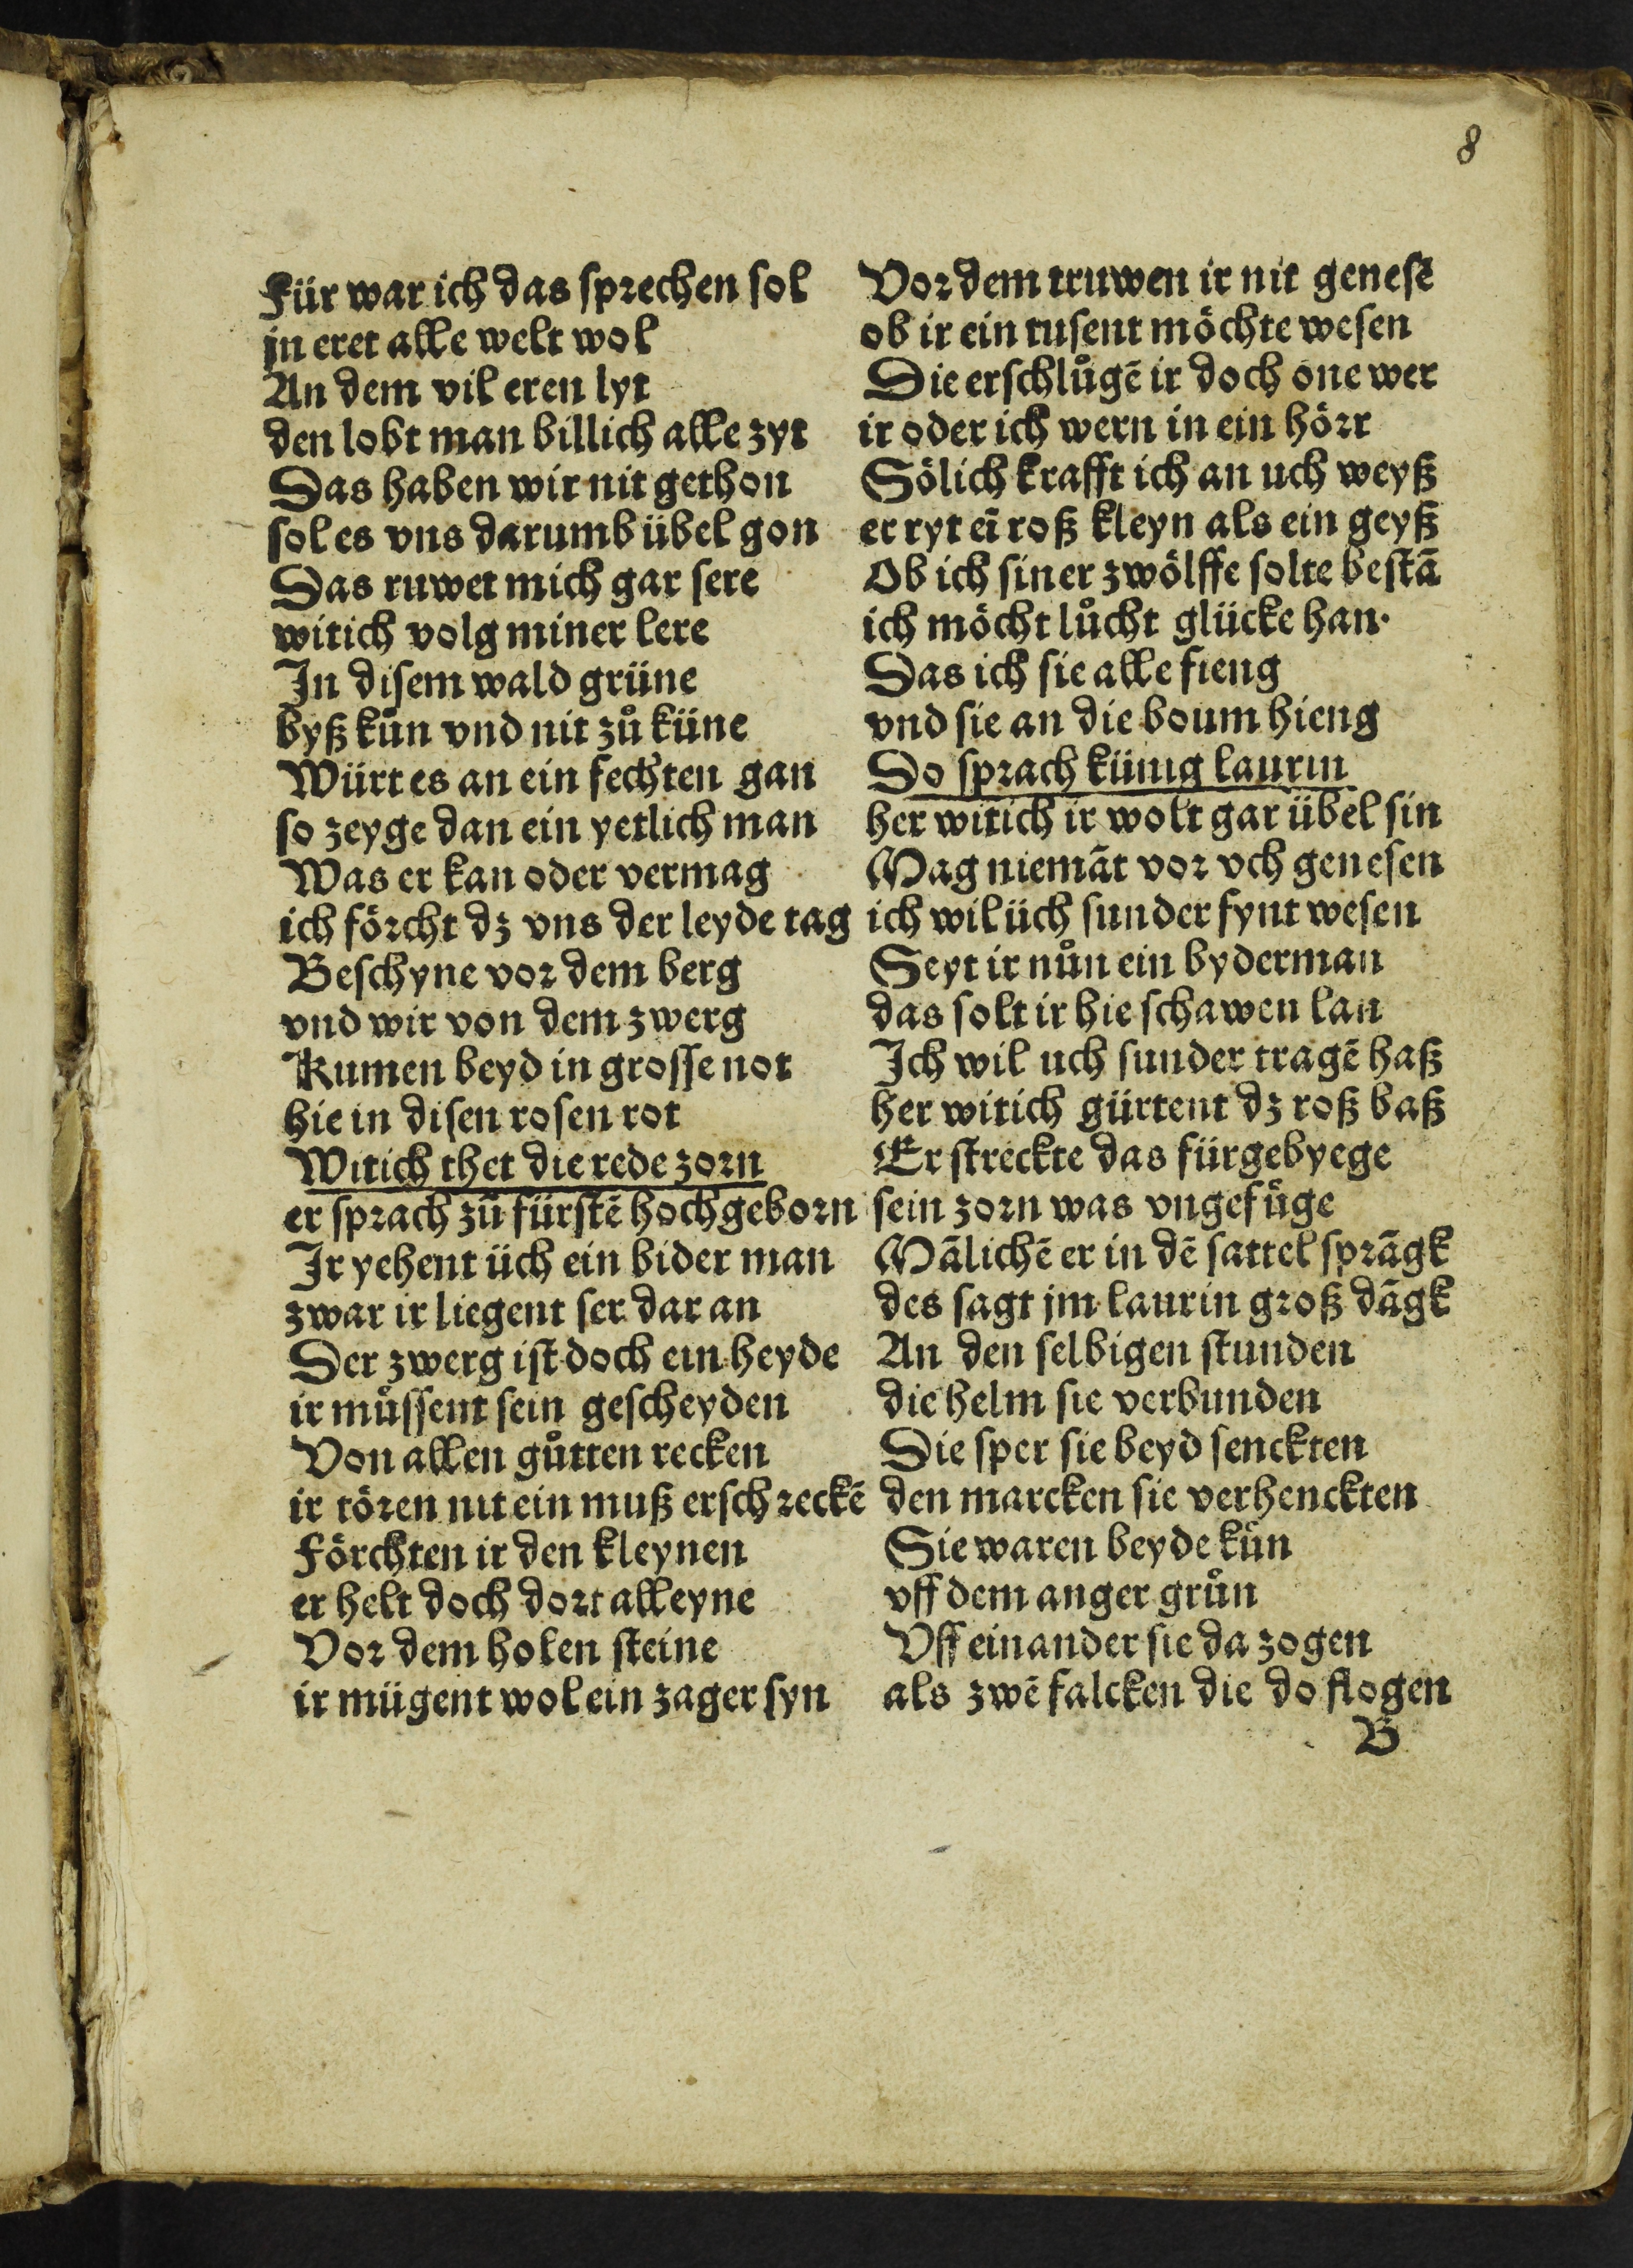 8
Für war ich das sprechen sol
jn eret alle welt wol
An dem vil eren lyt
den lobt man billich alle zyt
Das haben wir nit gethon
sol es vns darumb übel gon
Das ruwet mich gar sere
witich volg miner lere
In disem wald grüne
byß kůn vnd nit zů küne
Würt es an ein fechten gan
so zeyge dan ein yetlich man
Was er kan oder vermag
ich förcht dz vns der leyde tag
Beschyne vor dem berg
vnd wir von dem zwerg
Kumen beyd in grosse not
hie in disen rosen rot
Witich thet die rede zorn
er sprach zů fürstē hochgeborn
Ir yehent üch ein bider man
zwar ir liegent ser dar an
Der zwerg ist doch ein heyde
ir můssent sein gescheyden
Von allen gůtten recken
ir tören nit ein muß erschreckē
Förchten ir den kleynen
er helt doch dort alleyne
Vor dem holen steine
ir mügent wol ein zager syn
Vor dem truwen ir nit genesē
ob ir ein tusent möchte wesen
Die erschlůgē ir doch one wer
ir oder ich wern in ein hörr
Sölich krafft ich an uch weyß
er ryt eī roß kleyn als ein geyß
Ob ich siner zwölffe solte bestā
ich möcht lůcht glücke han·
Das ich sie alle fieng
vnd sie an die boum hieng
Do sprach künig laurin
her witich ir wolt gar übel sin
Mag niemāt vor vch genesen
ich wil üch sunder fynt wesen
Seyt ir nůn ein byderman
das solt ir hie schawen lan
Ich wil uch sunder tragē haß
her witich gürtent dz roß baß
Er streckte das fürgebyege
sein zorn was vngefůge
Mālichē er in dē sattel sprāgk
des sagt jm laurin groß dāgk
An den selbigen stunden
die helm sie verbunden
Die sper sie beyd senckten
den marcken sie verhenckten
Sie waren beyde kůn
vff dem anger grůn
Vff einander sie da zogen
als zwē falcken die do flogen
B